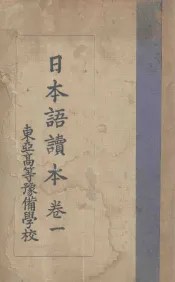 日本語讀本 卷一
東亞高等豫備學校